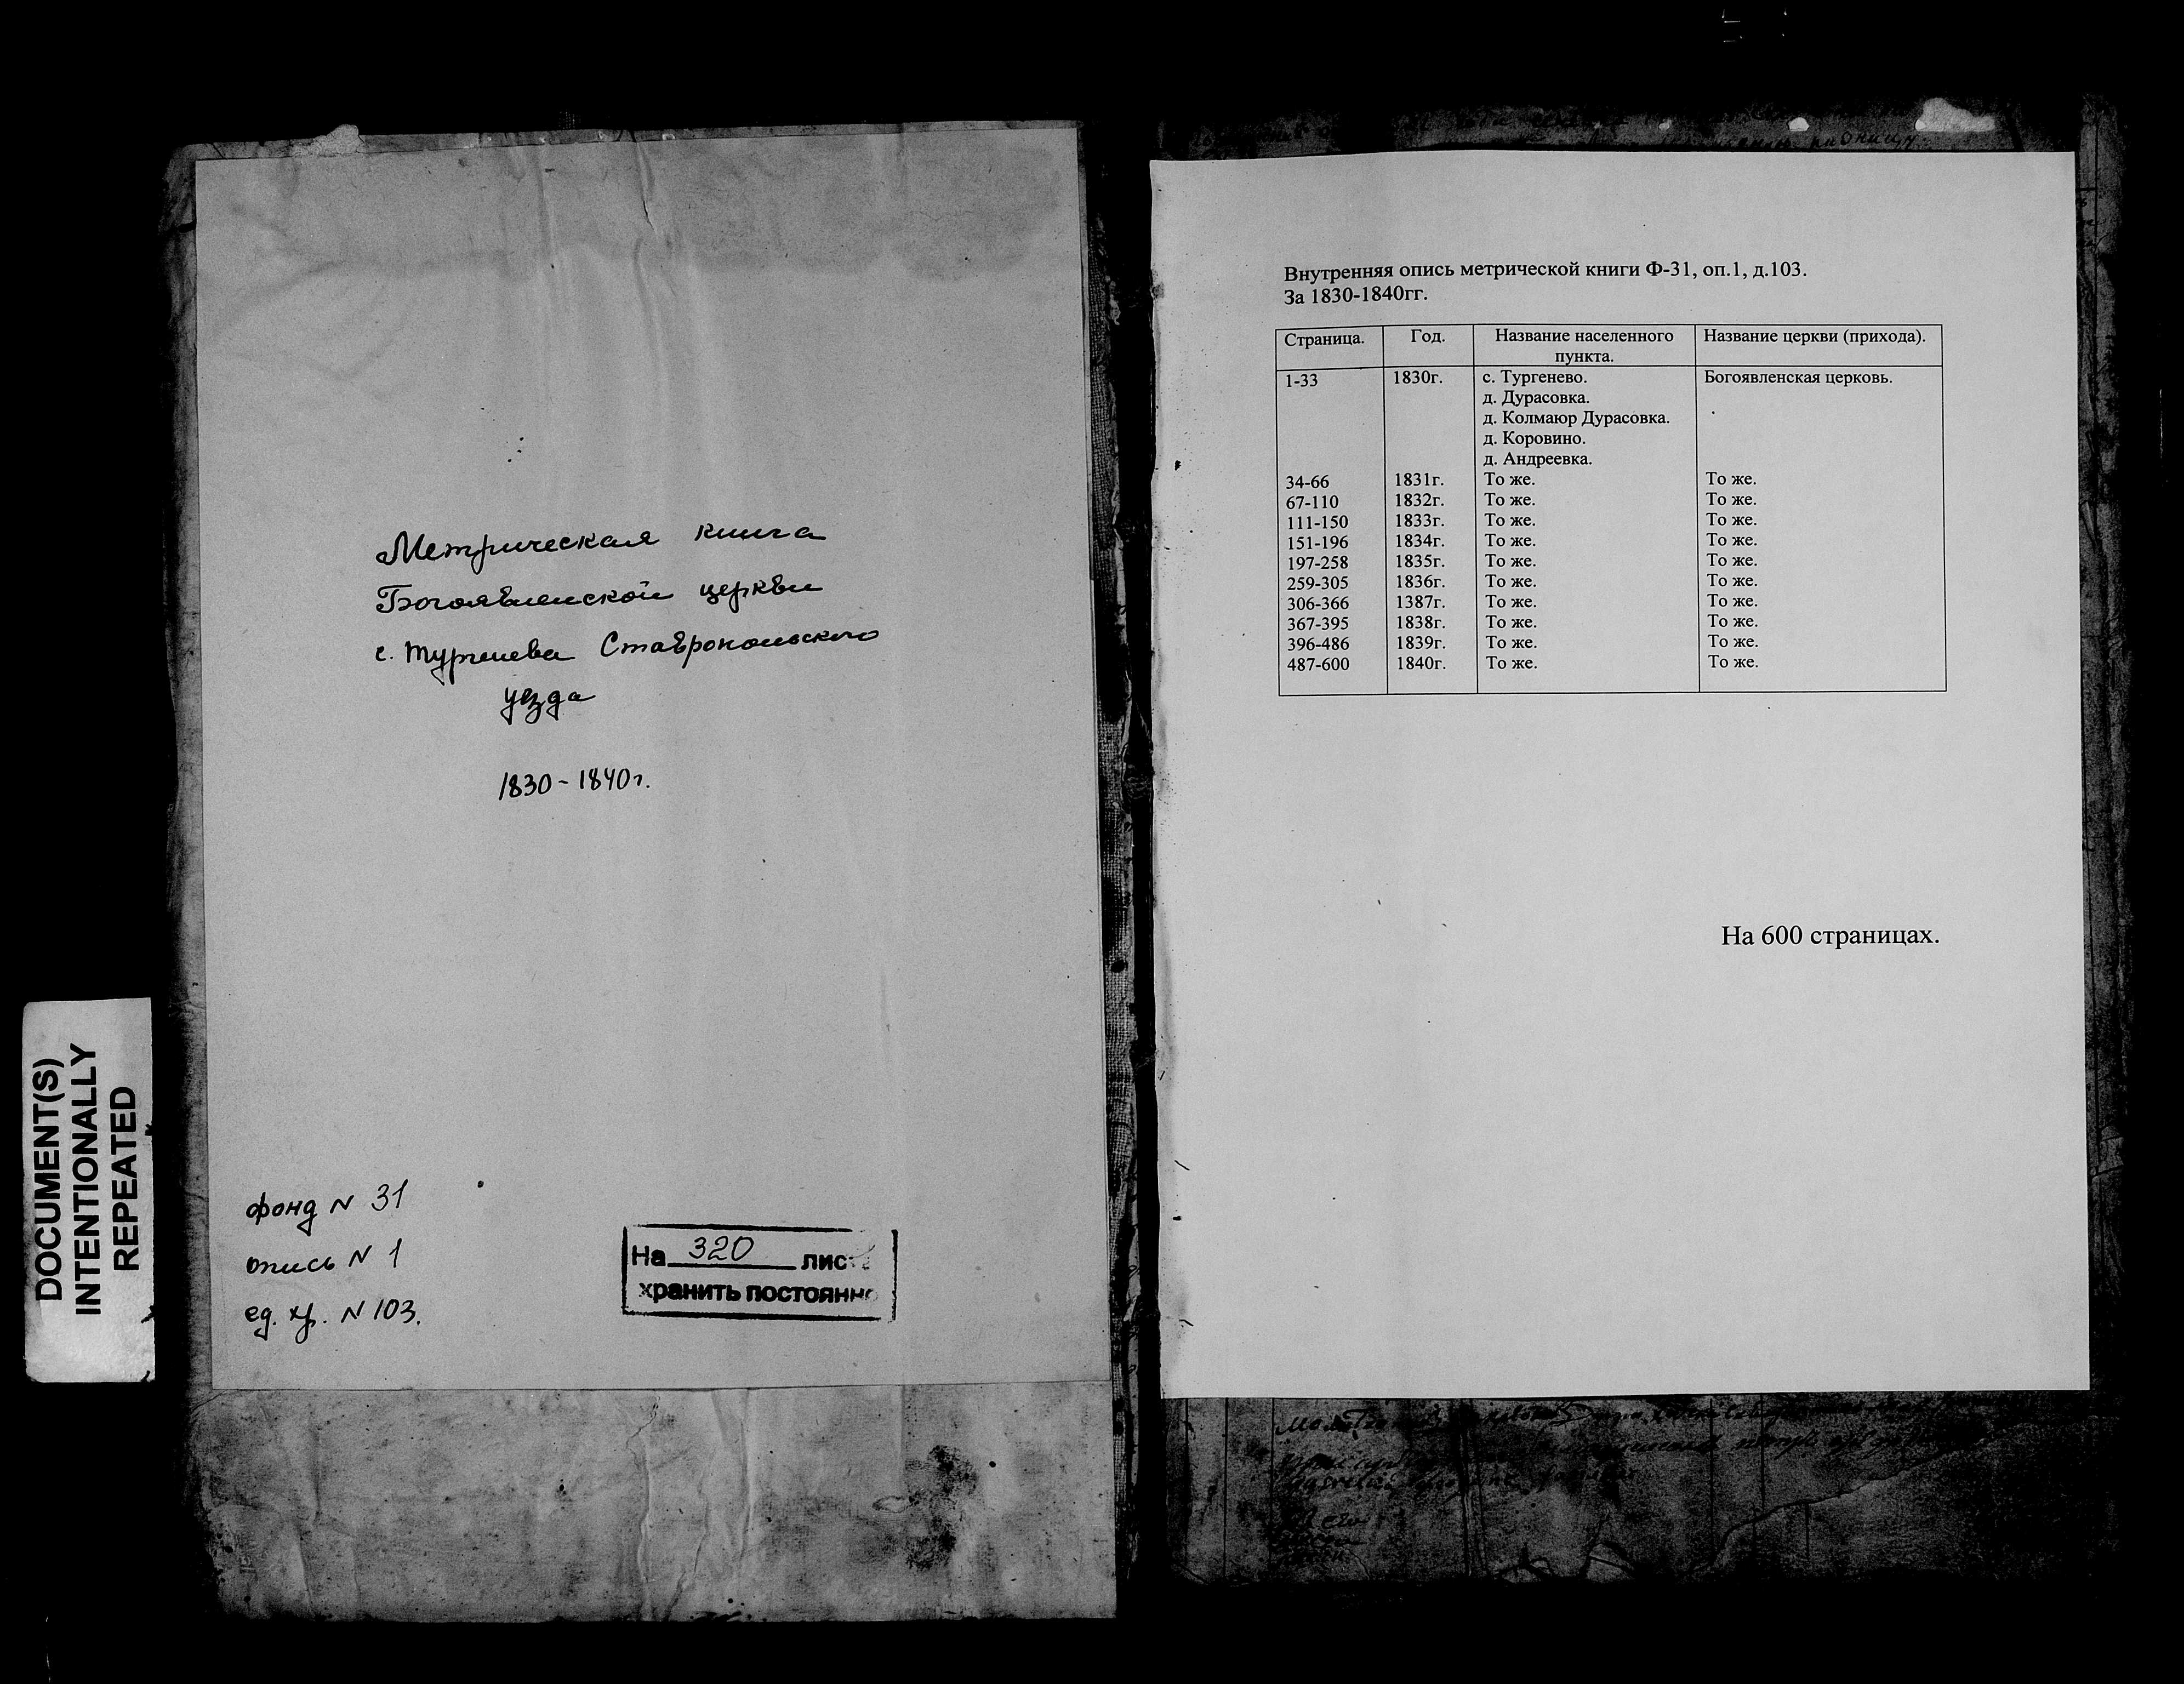 DOCUMENT(S)
INTENTIONALLY
REPEATED
Метрическая книга
Богоявленской церкви
с. Тургенева Ставропольского
уезда
1830 - 1840г.
фонд N 31
опись N 1
ед. хр. N 103.
На 320 лис
хранить постоянно
Внутренняя опись метрической книги Ф-31, оп.1, д.103.
За 1830-1840гг.
Страница. Год. Название населенного Название церкви (прихода).
пункта.
1-33 1830г. с. Тургенево. Богоявленская церковь.
д. Дурасовка.
д. Колмаюр Дурасовка.
д. Коровино.
д. Андреевка.
34-66 1831г. То же. То же.
67-110 1832г. То же. То же.
111-150 1833г. То же. То же.
151-196 1834г. То же. То же.
197-258 1835г. То же. То же.
259-305 1836г. То же. То же.
306-366 1387г. То же. То же.
367-395 1838г. То же. То же.
396-486 1839г. То же. То же.
487-600 1840г. То же. То же.
На 600 страницах.